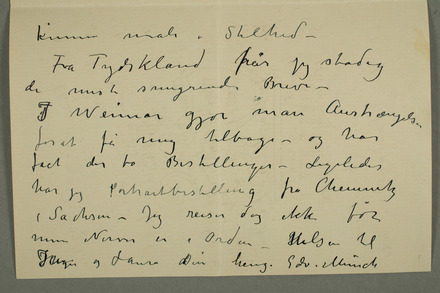 kunne male i Stilhed –
Fra Tydskland får jeg stadig
de mest smigrende Breve –
I Weimar gjør man Anstrængelser
for at få mig tilbage – og har
fået der to Bestillinger – Ligeledes
har jeg Portraitbestilling fra Chemnitz
i Sachsen – Jeg reiser dog ikke før
mine Nerver er i Orden – Hilsen til
Inger og Laura Din heng. Edv. Munch